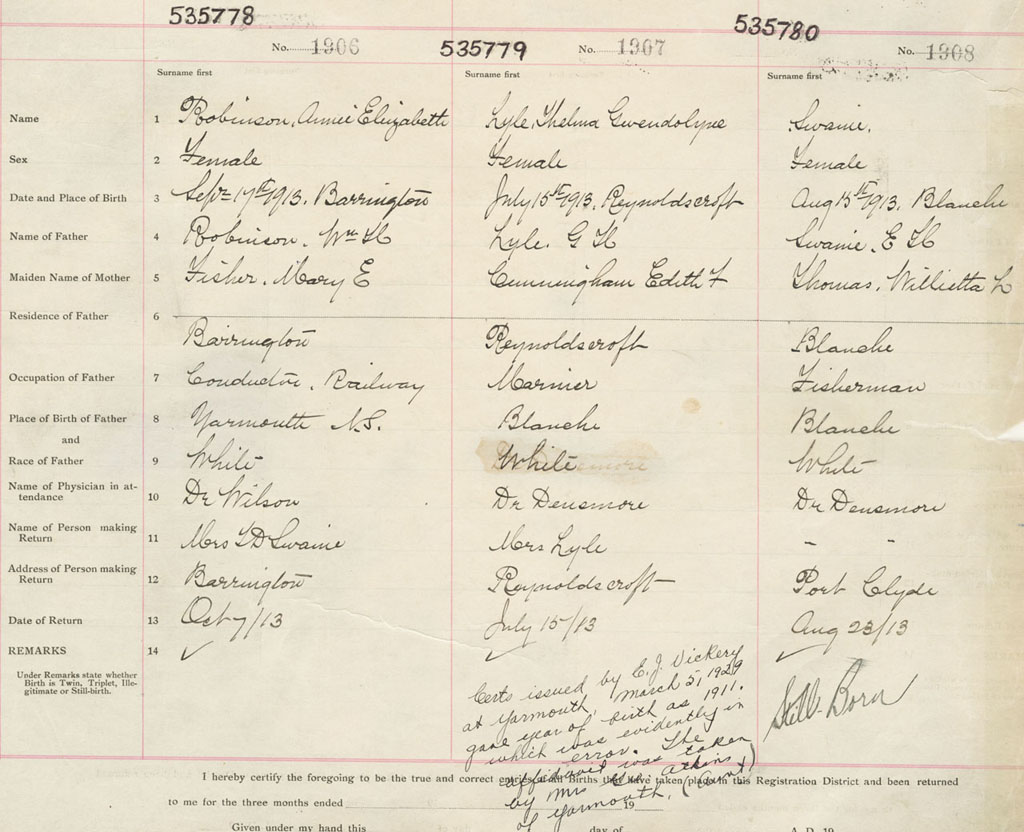 535778 535779 535780
No. 1306 No. 1307 No. 1308
Surname first Surname first Surname first
Name 1 Robinson, Annie Elizabeth Lyle, Thelma Gwendolyne Swaine,
Sex 2 Female Female Female
Date and Place of Birth 3 Sept 17th 1913, Barrington July 15th 1913, Reynoldscroft Aug 15th 1913, Blanche
Name of Father 4 Robinson, Wm H Lyle, G H Swaine, E H
Maiden Name of Mother 5 Fisher, Mary E Cunningham Edith F Thomas, Willietta L
Residence of Father 6
Barrington Reynoldscroft Blanche
Occupation of Father 7 Conductor, Railway Mariner Fisherman
Place of Birth of Father 8 Yarmouth N.S. Blanche Blanche
and
Race of Father 9 White White White
Name of Physician in at-
tendance 10 Dr Wilson Dr Densmore Dr Densmore
Name of Person making
Return 11 Mrs Swaine Mrs Lyle - -
Address of Person making
Return 12 Barrington Reynoldscroft Port Clyde
Date of Return 13 Oct 7/13 July 15/13 Aug 23/13
REMARKS 14
Under Remarks state whether
Birth is Twin, Triplet, Ille-
gitimate or Still-birth.
Certs issued by E. J. Vickery
at Yarmouth, March 5, 1929
gave year of birth as 1911.
which was evidently in
error. The
affidavit was taken
by Mrs Atkins
of Yarmouth. (Aunt)
Still-Born
I hereby certify the foregoing to be the true and correct entries of all Births that have taken place in this Registration District and been returned
to me for the three months ended 19
Given under my hand this day of A. D. 19